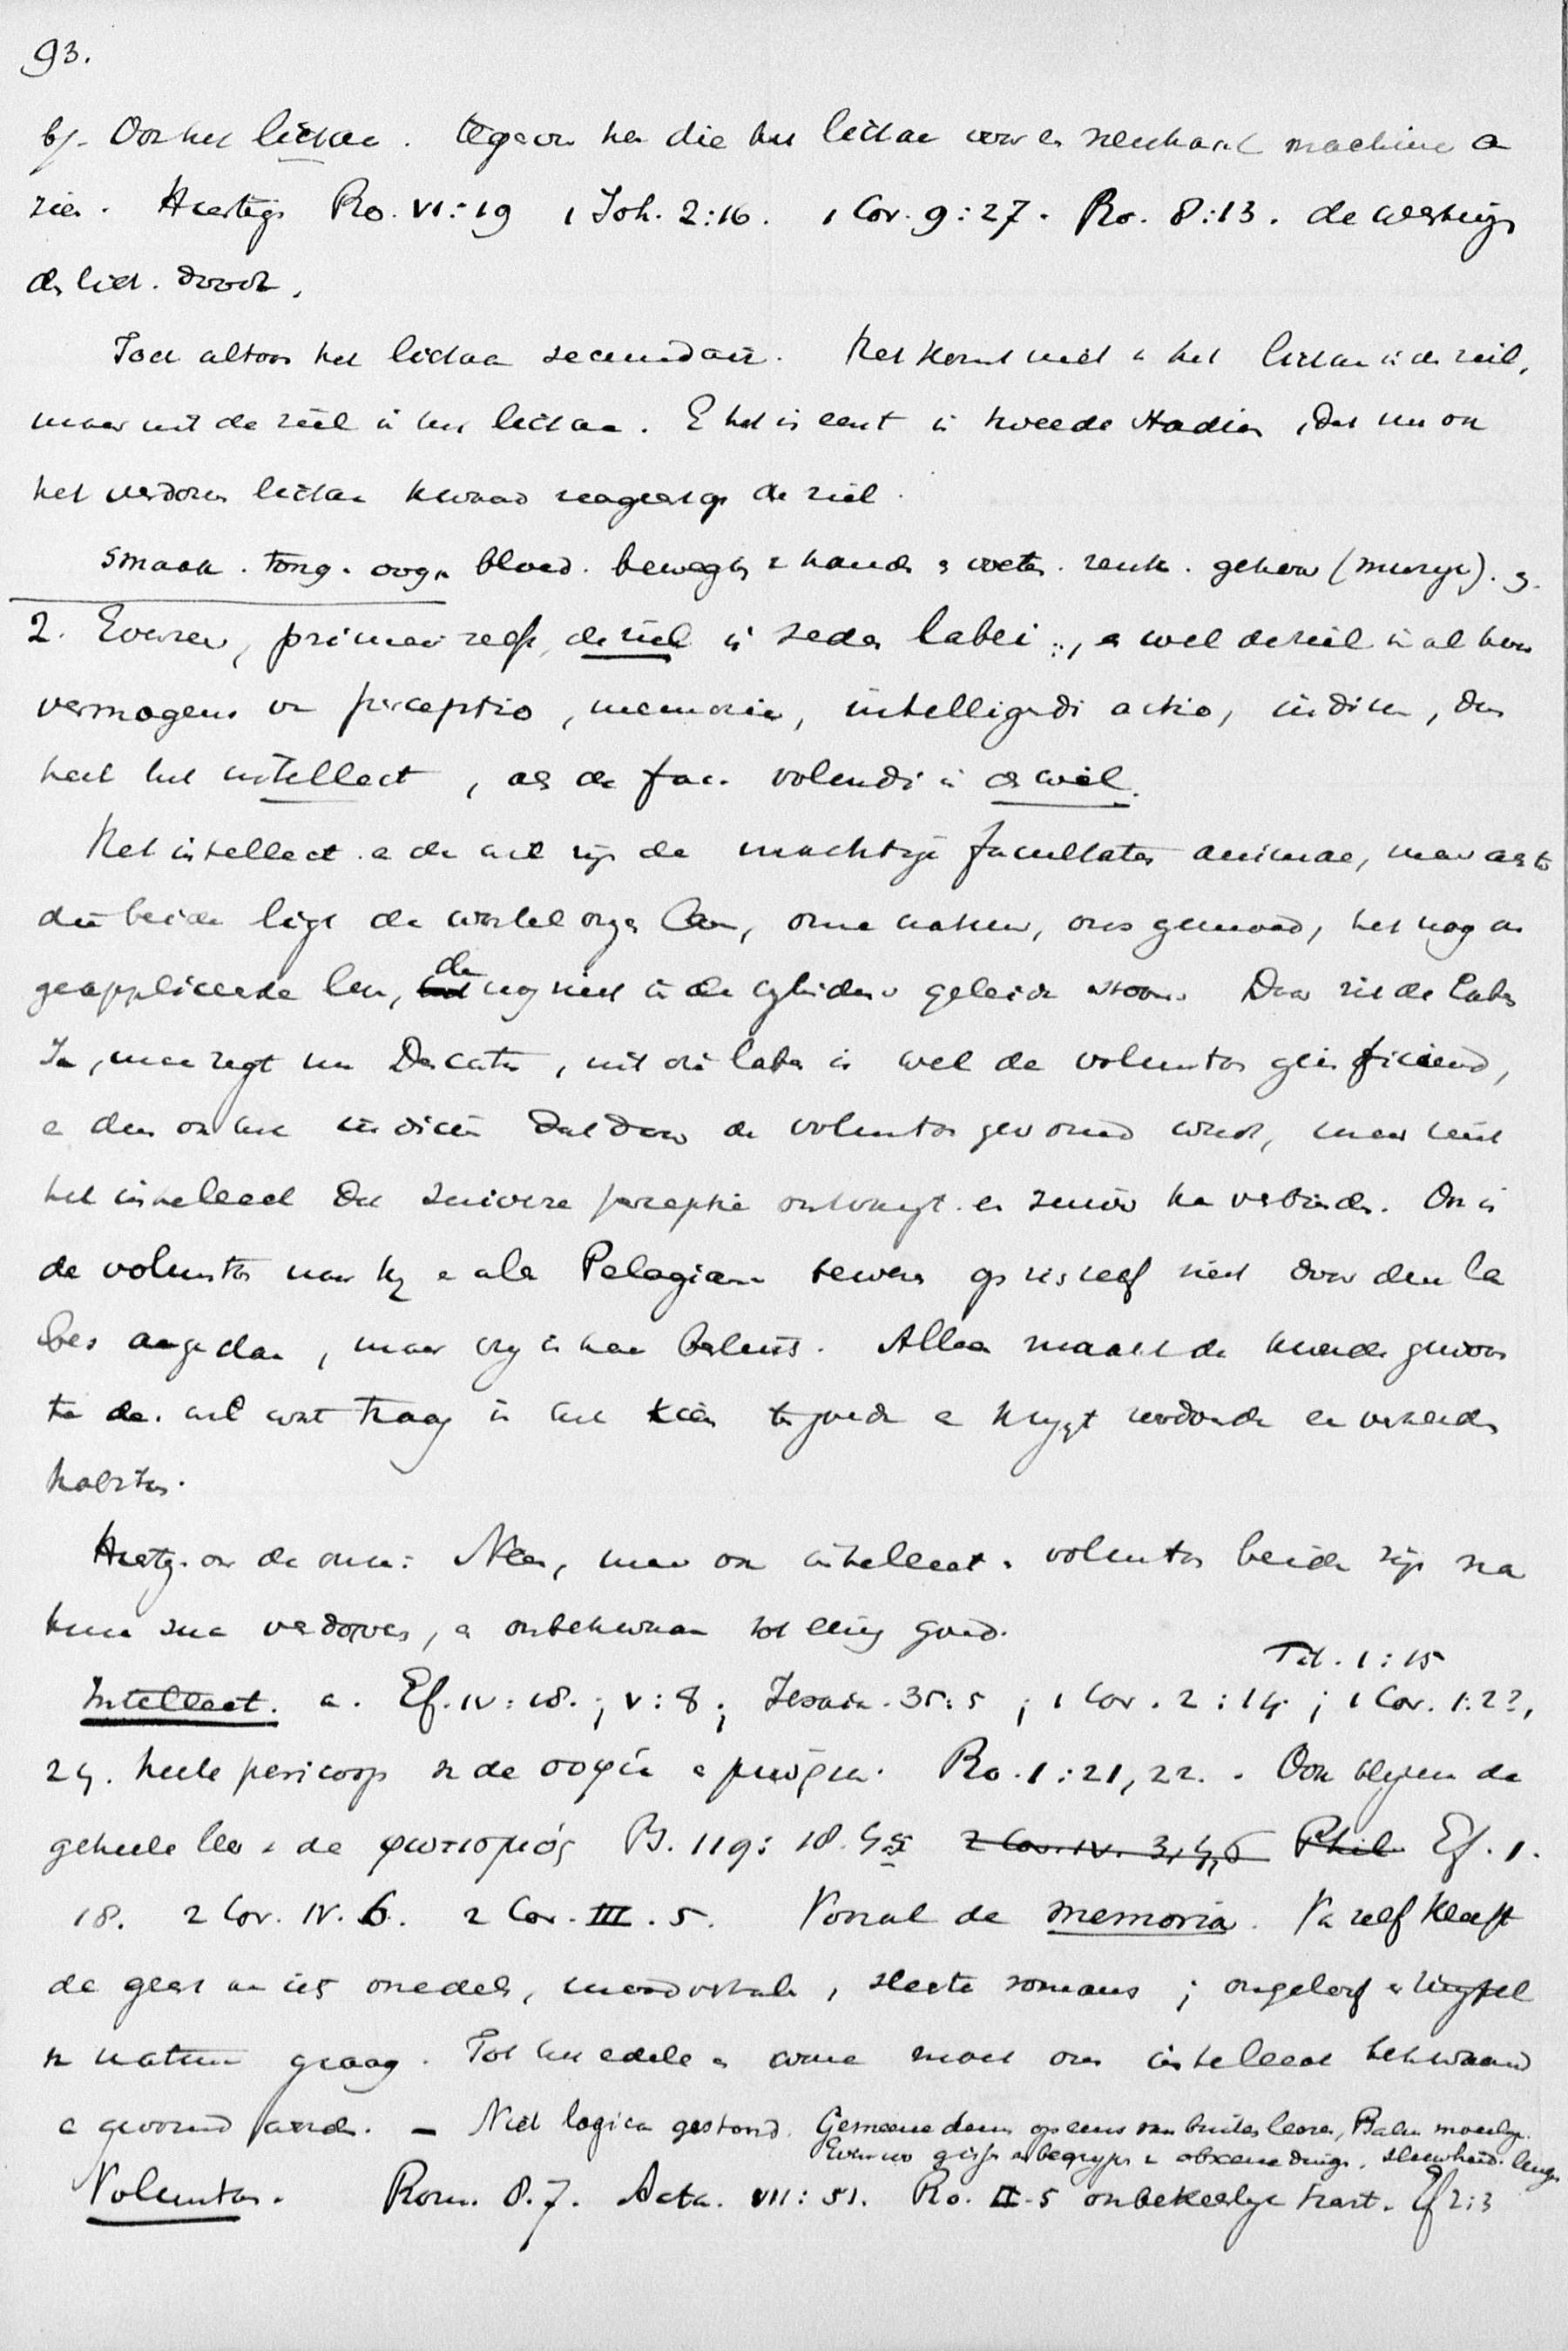 93.
b/. Ook het lichaam. tegenover hen die het lichaam voor en machine a
zien. Hiertegen Ro. VI:19 1 Joh. 2:16. 1 Cor. 9:27. Ro. 8:13. de werking
des lich. dood.
Toch altoos het lichaam secundair. Het komt niet in het lichaam in de ziel,
maar uit de ziel in het lichaam. En het is eerst in tweede stadium, dat nu ook
het verdorven lichaam kwaad reageert op de ziel.
smaak. tong. oogen bloed. beweging handen voeten. reuk. gehoor (muzyk).
2. Evenzeer, primair zelfs, de ziel is sedes labei, en wel de ziel in al hare
vermogens van perceptio, memoria, intelligendi actio, iudicium, dus
heel het intellect, als de fac. volendi in de wil.
Het intellect en de wil zijn de machtige facultates animae, maar achter
die beide ligt de wortel onzer Can, onze natuur, ons gemoed, het nog on
geappliceerde leven, de nog niet in de cylinders geleide stoom. Daar zit de labes
Ja, maar zegt nu Descartes, uit die labes is wel de voluntas geinficieerd,
en dus ook het iudicium dat door de voluntas gevormd wordt, maar niet
het intellect dat zuivere perceptie ontvangt en zuiver kan verbinden. Ook is
de voluntas naar hy en alle Pelagianen beweren op zichzelf niet door den la
bes aangedaan, maar vry in haar besluit. Alleen maakt de kwade gewoon
te de wil wat traag in het kiezen ten goede en krygt zoodoende een verkeerden
habitus.
Hiertegen de onze: Neen, maar ook intellect en voluntas beide zijn na
hun zyn verdorven, en onbekwaam tot eenig goed.
Tit. 1:15
Intellect. a. Ef. IV:18.; V:8; Jesaia. 35:5; 1 Cor. 2:14; 1 Cor. 1:22,
24. heele pericoop de σοφία μωρία. Ro. 1:21, 22. Ook blykens de
geheele leer de φωτισμός Ps. 119:18. 2 Cor. IV. 3,4,6 Phil. Ef. 1.
18. 2 Cor. IV. 6. 2 Cor. III. 5. Vooral de memoria. Van zelf kleeft
de geest aan iets onedels, moordverhalen, slechte romans; ongeloof en twyfel
natuur graag. Tot het edele en ware moet ons intellect bekwaamd
en gevormd worden. – Niet logica gestoord. Gemeene deun opeens van buiten leeren, Psalm moeielyk.
Evenzoo gissen en begrypen obscene dingen, sluwheid. leugen
Voluntas. Rom. 8.7. Acta. VII:51. Ro. II.5 onbekeerlyk hart. Ef 2:3